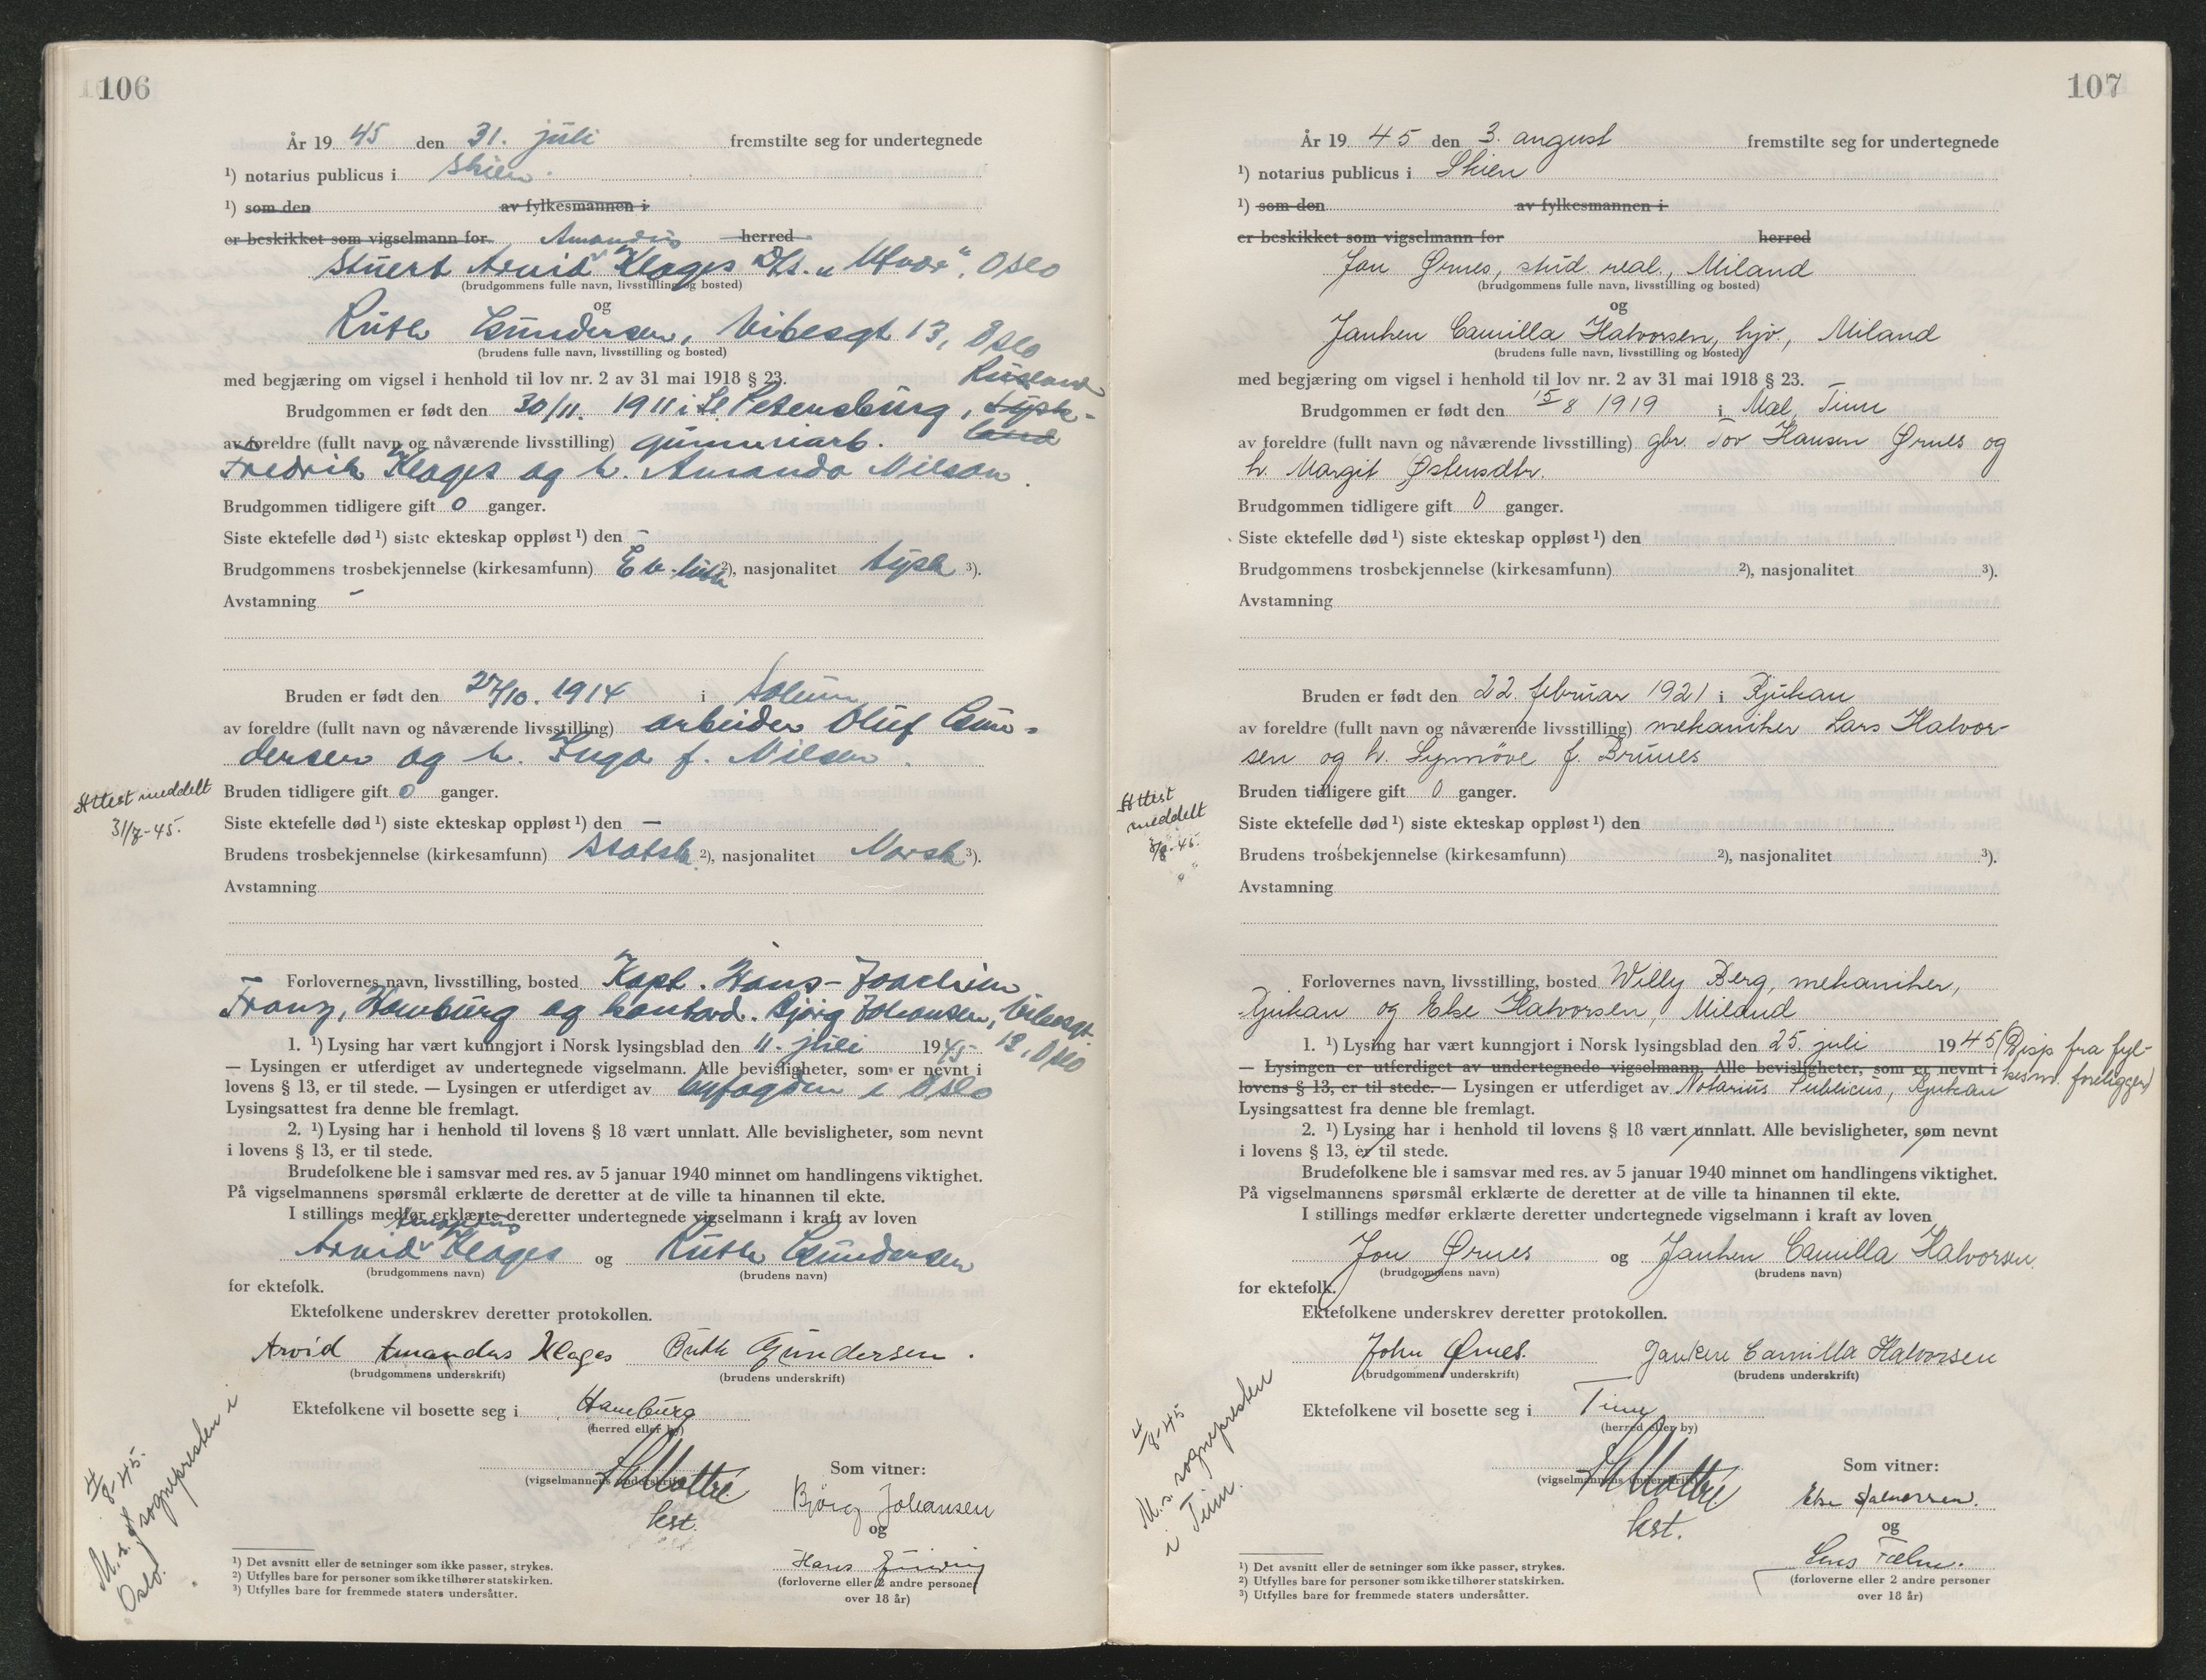 106
År 1945 den 31. juli fremstilte seg for undertegnede
¹) notarius publicus i Skien.
¹) som den av fylkesmannen i
er beskikket som vigselmann for Amandus herred
Stuert Arvid Klages D/s. „Ufvar“, Oslo
(brudgommens fulle navn, livsstilling og bosted)
og
Ruth Gundersen, Vibesgt 13, Oslo
(brudens fulle navn, livsstilling og bosted)
med begjæring om vigsel i henhold til lov nr. 2 av 31 mai 1918 § 23.
Russland
Brudgommen er født den 30/11. 1911 i St. Petersburg, Tysk-
land
av foreldre (fullt navn og nåværende livsstilling) gummiarb.
Fredrik Klages og h. Amanda Nilson.
Brudgommen tidligere gift 0 ganger.
Siste ektefelle død ¹) siste ekteskap oppløst ¹) den –
Brudgommens trosbekjennelse (kirkesamfunn) Ev-luth ²), nasjonalitet tysk ³).
Avstamning –
Bruden er født den 27/10. 1914 i Solum
av foreldre (fullt navn og nåværende livsstilling) arbeider Oluf Gun-
dersen og h. Inga f. Nilsen.
Attest meddelt
31/7-45.
Bruden tidligere gift 0 ganger.
Siste ektefelle død ¹) siste ekteskap oppløst ¹) den —
Brudens trosbekjennelse (kirkesamfunn) Statsk. ²), nasjonalitet Norsk ³).
Avstamning
Forlovernes navn, livsstilling, bosted Kapt. Hans-Joachim
Franz, Hamburg og kontord. Bjørg Johansen, Vibesgt.
13, Oslo
1. ¹) Lysing har vært kunngjort i Norsk lysingsblad den 11. juli 1945
— Lysingen er utferdiget av undertegnede vigselmann. Alle bevisligheter, som er nevnt i
lovens § 13, er til stede. — Lysingen er utferdiget av byfogden i Oslo
Lysingsattest fra denne ble fremlagt.
2. ¹) Lysing har i henhold til lovens § 18 vært unnlatt. Alle bevisligheter, som nevnt
i lovens § 13, er til stede.
Brudefolkene ble i samsvar med res. av 5 januar 1940 minnet om handlingens viktighet.
På vigselmannens spørsmål erklærte de deretter at de ville ta hinannen til ekte.
I stillings medfør erklærte deretter undertegnede vigselmann i kraft av loven
Amandus
Arvid Klages og Ruth Gundersen
(brudgommens navn) (brudens navn)
for ektefolk.
Ektefolkene underskrev deretter protokollen.
Arvid Amandus Klages Ruth Gundersen.
(brudgommens underskrift) (brudens underskrift)
Ektefolkene vil bosette seg i Hamburg
(herred eller by)
(vigselmannens underskrift)
kst.
Som vitner:
Bjørg Johansen
og
Hans
(forloverne eller 2 andre personer
over 18 år)
4/8-45.
M. s. sognepresten i
Oslo.
¹) Det avsnitt eller de setninger som ikke passer, strykes.
²) Utfylles bare for personer som ikke tilhører statskirken.
³) Utfylles bare for fremmede staters undersåtter.
107
År 1945 den 3. august fremstilte seg for undertegnede
¹) notarius publicus i Skien
¹) som den av fylkesmannen i
er beskikket som vigselmann for herred
Jon Ørnes, stud. real., Miland
(brudgommens fulle navn, livsstilling og bosted)
og
Janken Camilla Halvorsen, hjv., Miland
(brudens fulle navn, livsstilling og bosted)
med begjæring om vigsel i henhold til lov nr. 2 av 31 mai 1918 § 23.
Brudgommen er født den 15/8 1919 i Mæl, Tinn
av foreldre (fullt navn og nåværende livsstilling) gbr. Tov Hansen Ørnes og
h. Margit Østensdtr.
Brudgommen tidligere gift 0 ganger.
Siste ektefelle død ¹) siste ekteskap oppløst ¹) den
Brudgommens trosbekjennelse (kirkesamfunn) ²), nasjonalitet ³).
Avstamning
Bruden er født den 22. februar 1921 i Rjukan
av foreldre (fullt navn og nåværende livsstilling) mekaniker Lars Halvor-
sen og h. Synnöve f. Brunes
Attest
meddelt
3/8-45.
Bruden tidligere gift 0 ganger.
Siste ektefelle død ¹) siste ekteskap oppløst ¹) den
Brudens trosbekjennelse (kirkesamfunn) ²), nasjonalitet ³).
Avstamning
Forlovernes navn, livsstilling, bosted Willy Berg, mekaniker,
Rjukan og Else Halvorsen, Miland
1. ¹) Lysing har vært kunngjort i Norsk lysingsblad den 25. juli 1945 (Disp fra fyl-
kesm. foreligger)
— Lysingen er utferdiget av undertegnede vigselmann. Alle bevisligheter, som er nevnt i
lovens § 13, er til stede. — Lysingen er utferdiget av Notarius Publicus, Rjukan
Lysingsattest fra denne ble fremlagt.
2. ¹) Lysing har i henhold til lovens § 18 vært unnlatt. Alle bevisligheter, som nevnt
i lovens § 13, er til stede.
Brudefolkene ble i samsvar med res. av 5 januar 1940 minnet om handlingens viktighet.
På vigselmannens spørsmål erklærte de deretter at de ville ta hinannen til ekte.
I stillings medfør erklærte deretter undertegnede vigselmann i kraft av loven
Jon Ørnes og Janken Camilla Halvorsen
(brudgommens navn) (brudens navn)
for ektefolk.
Ektefolkene underskrev deretter protokollen.
John Ørnes. Janken Camilla Halvorsen
(brudgommens underskrift) (brudens underskrift)
Ektefolkene vil bosette seg i Tinn
(herred eller by)
(vigselmannens underskrift)
kst.
Som vitner:
Else Halvorsen.
og
(forloverne eller 2 andre personer
over 18 år)
4/8-45
M. s. sognepresten
i Tinn.
¹) Det avsnitt eller de setninger som ikke passer, strykes.
²) Utfylles bare for personer som ikke tilhører statskirken.
³) Utfylles bare for fremmede staters undersåtter.